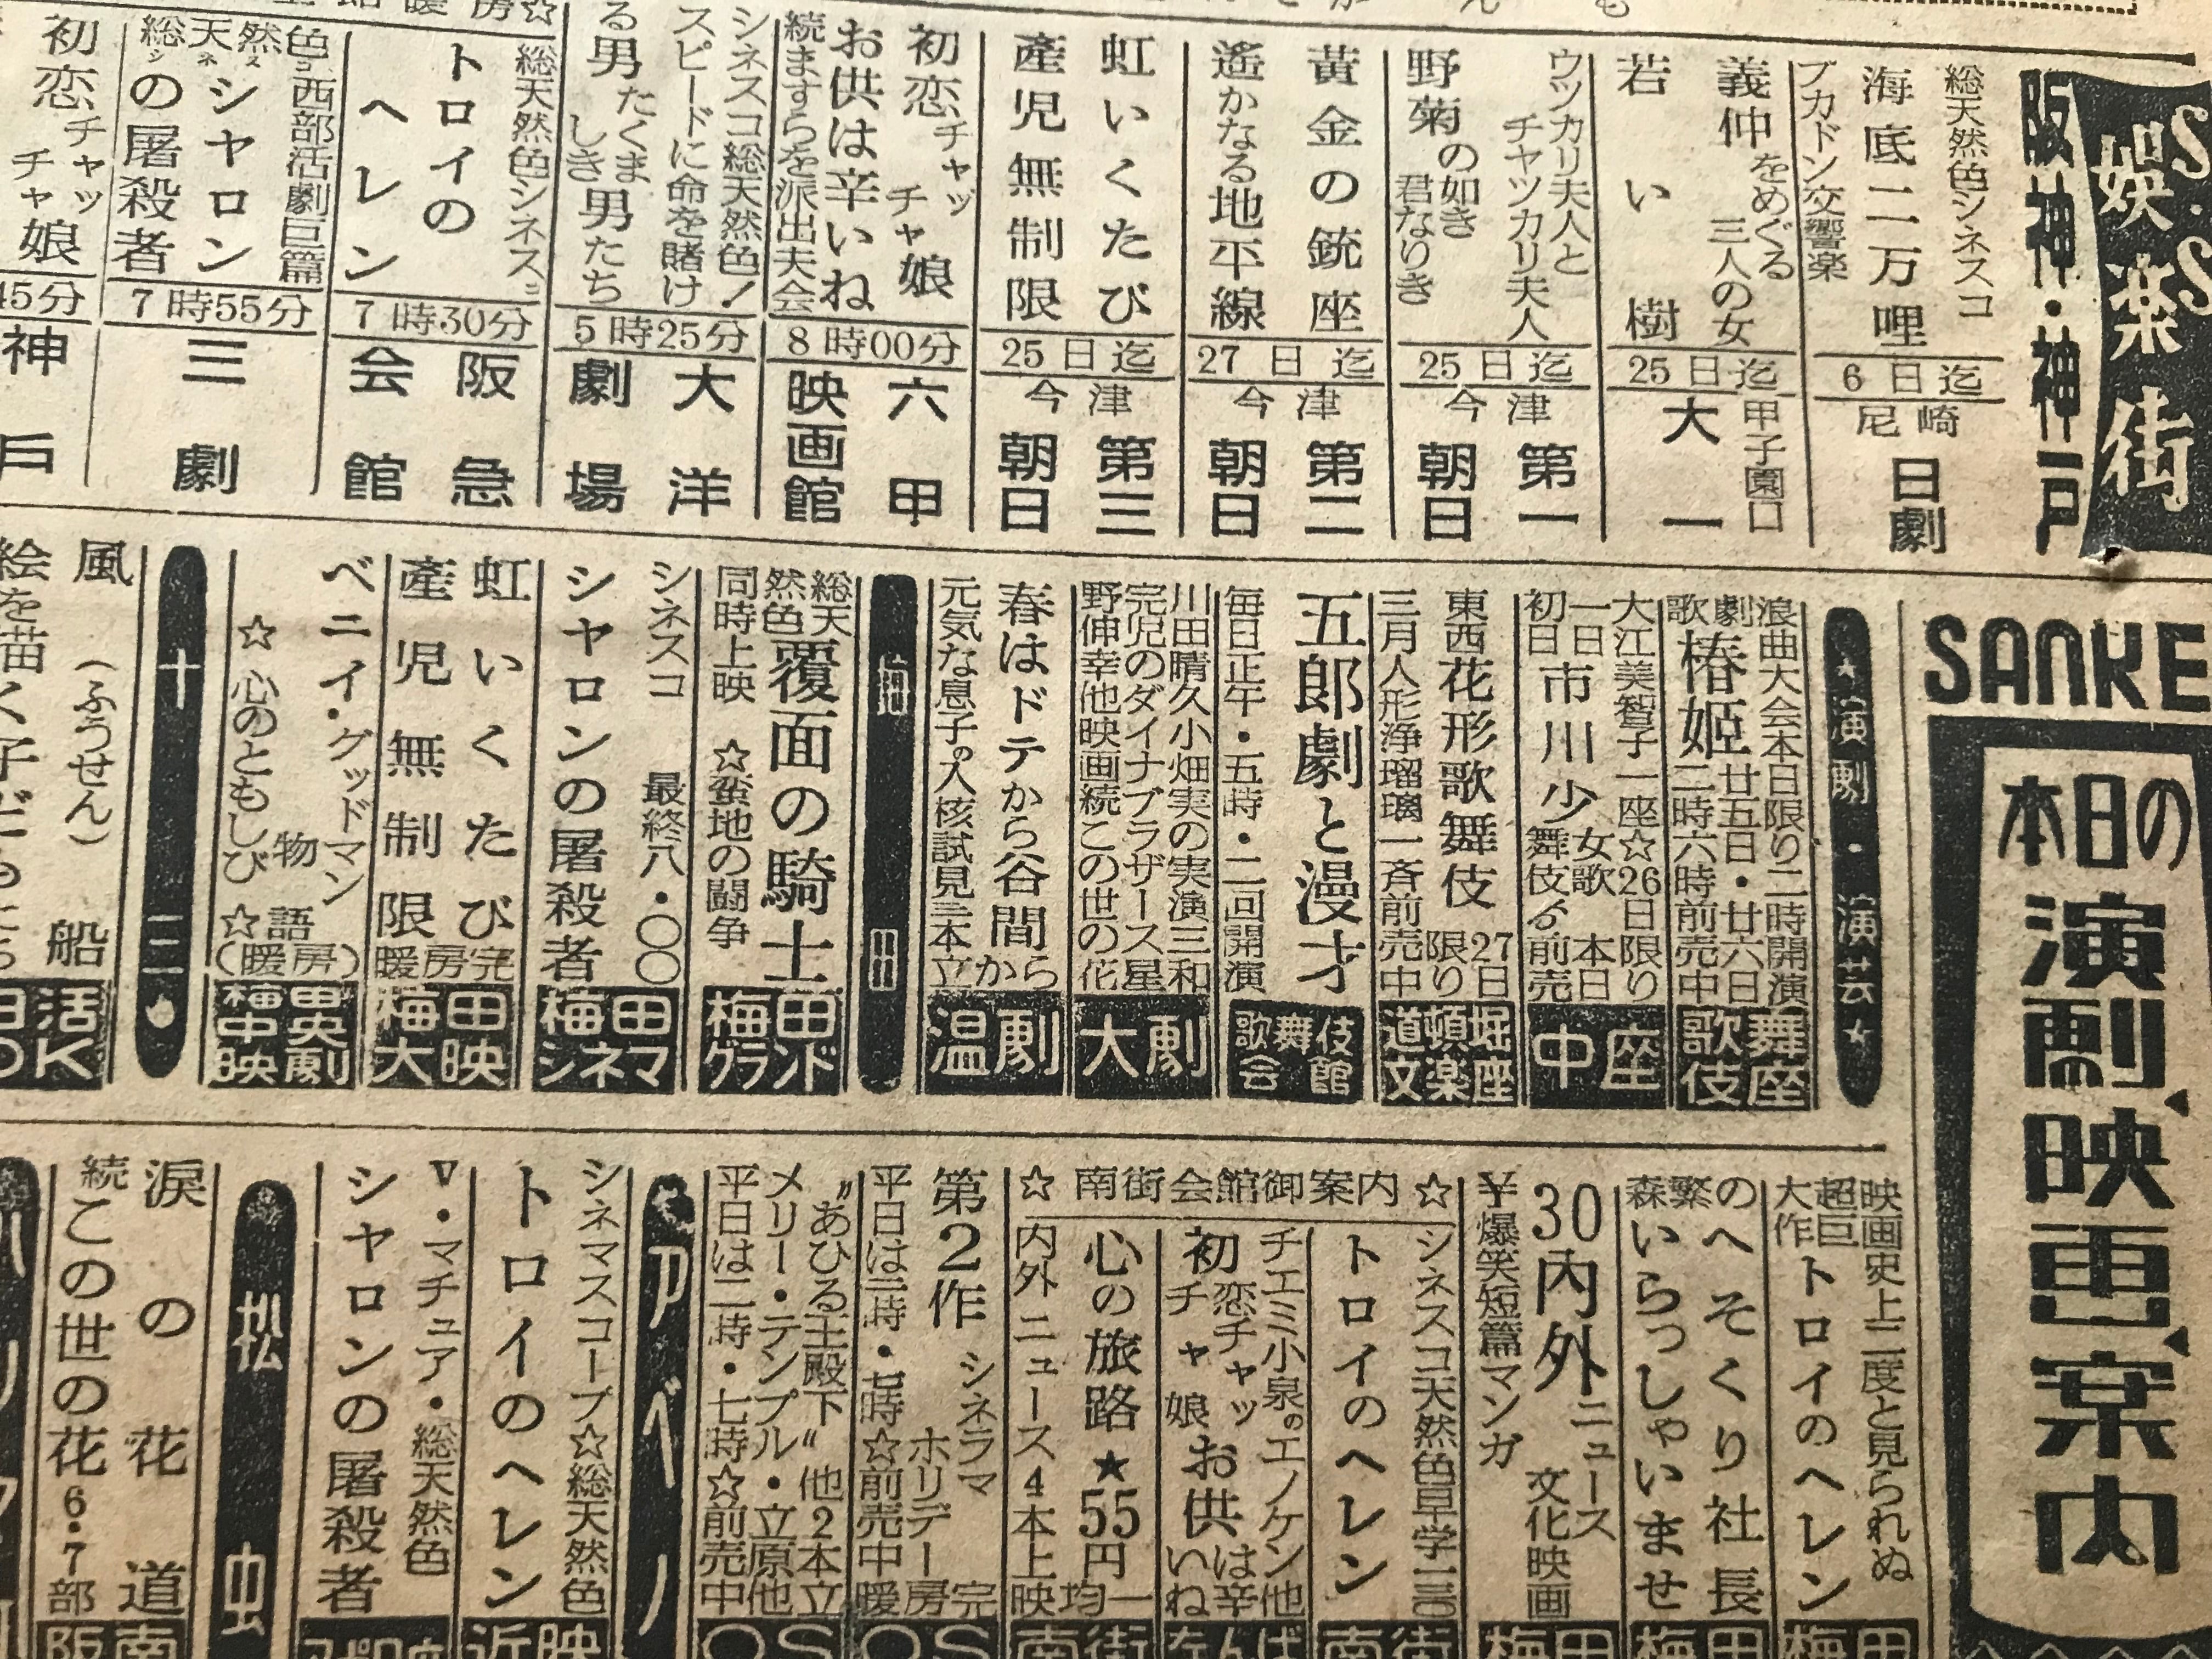 S.S
娯楽街
阪神・神戸
総天然色シネスコ
海底二万哩
ブカドン交響楽
6日迄
尼崎
日劇
義仲をめぐる三人の女
若い樹
25日迄
甲子園口
大一
ウツカリ夫人とチャツカリ夫人
野菊の如き君なりき
25日迄
今津
第一朝日
黄金の銃座
遙かなる地平線
27日迄
今津
第二朝日
虹いくたび
産児無制限
25日迄
今津
第三朝日
初恋チャッチャ娘
お供は辛いね
続ますらを派出夫会
8時00分
六甲映画館
シネスコ総天然色!
スピードに命を賭ける男たくましき男たち
5時25分
大洋劇場
総天然色シネスコ
トロイのヘレン
7時30分
阪急会館
色コ西部活劇巨篇
総天然シネス
シャロンの屠殺者
7時55分
三劇
初恋チャッチャ娘
45分
神戸
SANKE
本日の演劇、映画、案内
★演劇・演芸★
浪曲大会本日限り二時開演
歌劇椿姫廿五日・廿六日二時六時前売中
歌舞伎座
大江美智子一座☆26日限り
一日初日市川少女歌舞伎本日ゟ前売
中座
東西花形歌舞伎27日限り
三月人形浄瑠璃一斉前売中
道頓堀文楽座
五郎劇と漫才
毎日正午・五時・二回開演
歌舞伎会館
川田晴久小畑実の実演三和
完児のダイナブラザース星
野伸幸他映画続この世の花
大劇
春はドテから谷間から
元気な息子の人核試見三本立
温劇
梅田
総天然色覆面の騎士
同時上映☆蛮地の闘争
梅田グランド
シネスコ 最終八・〇〇
シャロンの屠殺者
梅田シネマ
虹いくたび
産児無制限
暖房完
梅田大映
ベニイ・グッドマン物語
☆心のともしび☆
(暖房)
梅田中央映劇
十三
風船
(ふうせん)
絵を描く子どもたち
日活OK
映画史上二度と見られぬ
超巨大作トロイのヘレン
梅田
のへそくり社長
森繁いらっしゃいませ
梅田
30内外ニュース
文化映画
¥爆笑短篇マンガ
梅田
☆南街会館御案内☆
シネスコ天然色早学一三〇
トロイのヘレン
南街
チエミ小泉のエノケン他
初恋チャッチャ娘
お供は辛いね
なんば
心の旅路★55円均一
内外ニュース4本上映
南街
第2作シネラマホリデー
平日は三時・七時☆前売中暖房完
OS
"あひる王殿下"他2本立
メリー・テンプル・立原他
平日は二時・七時☆前売中
OS
アベノ
シネマスコープ☆総天然色
トロイのヘレン
近映
V・マチュア・総天然色
シャロンの屠殺者
松虫
涙の花道
続この世の花6・7部
阪南